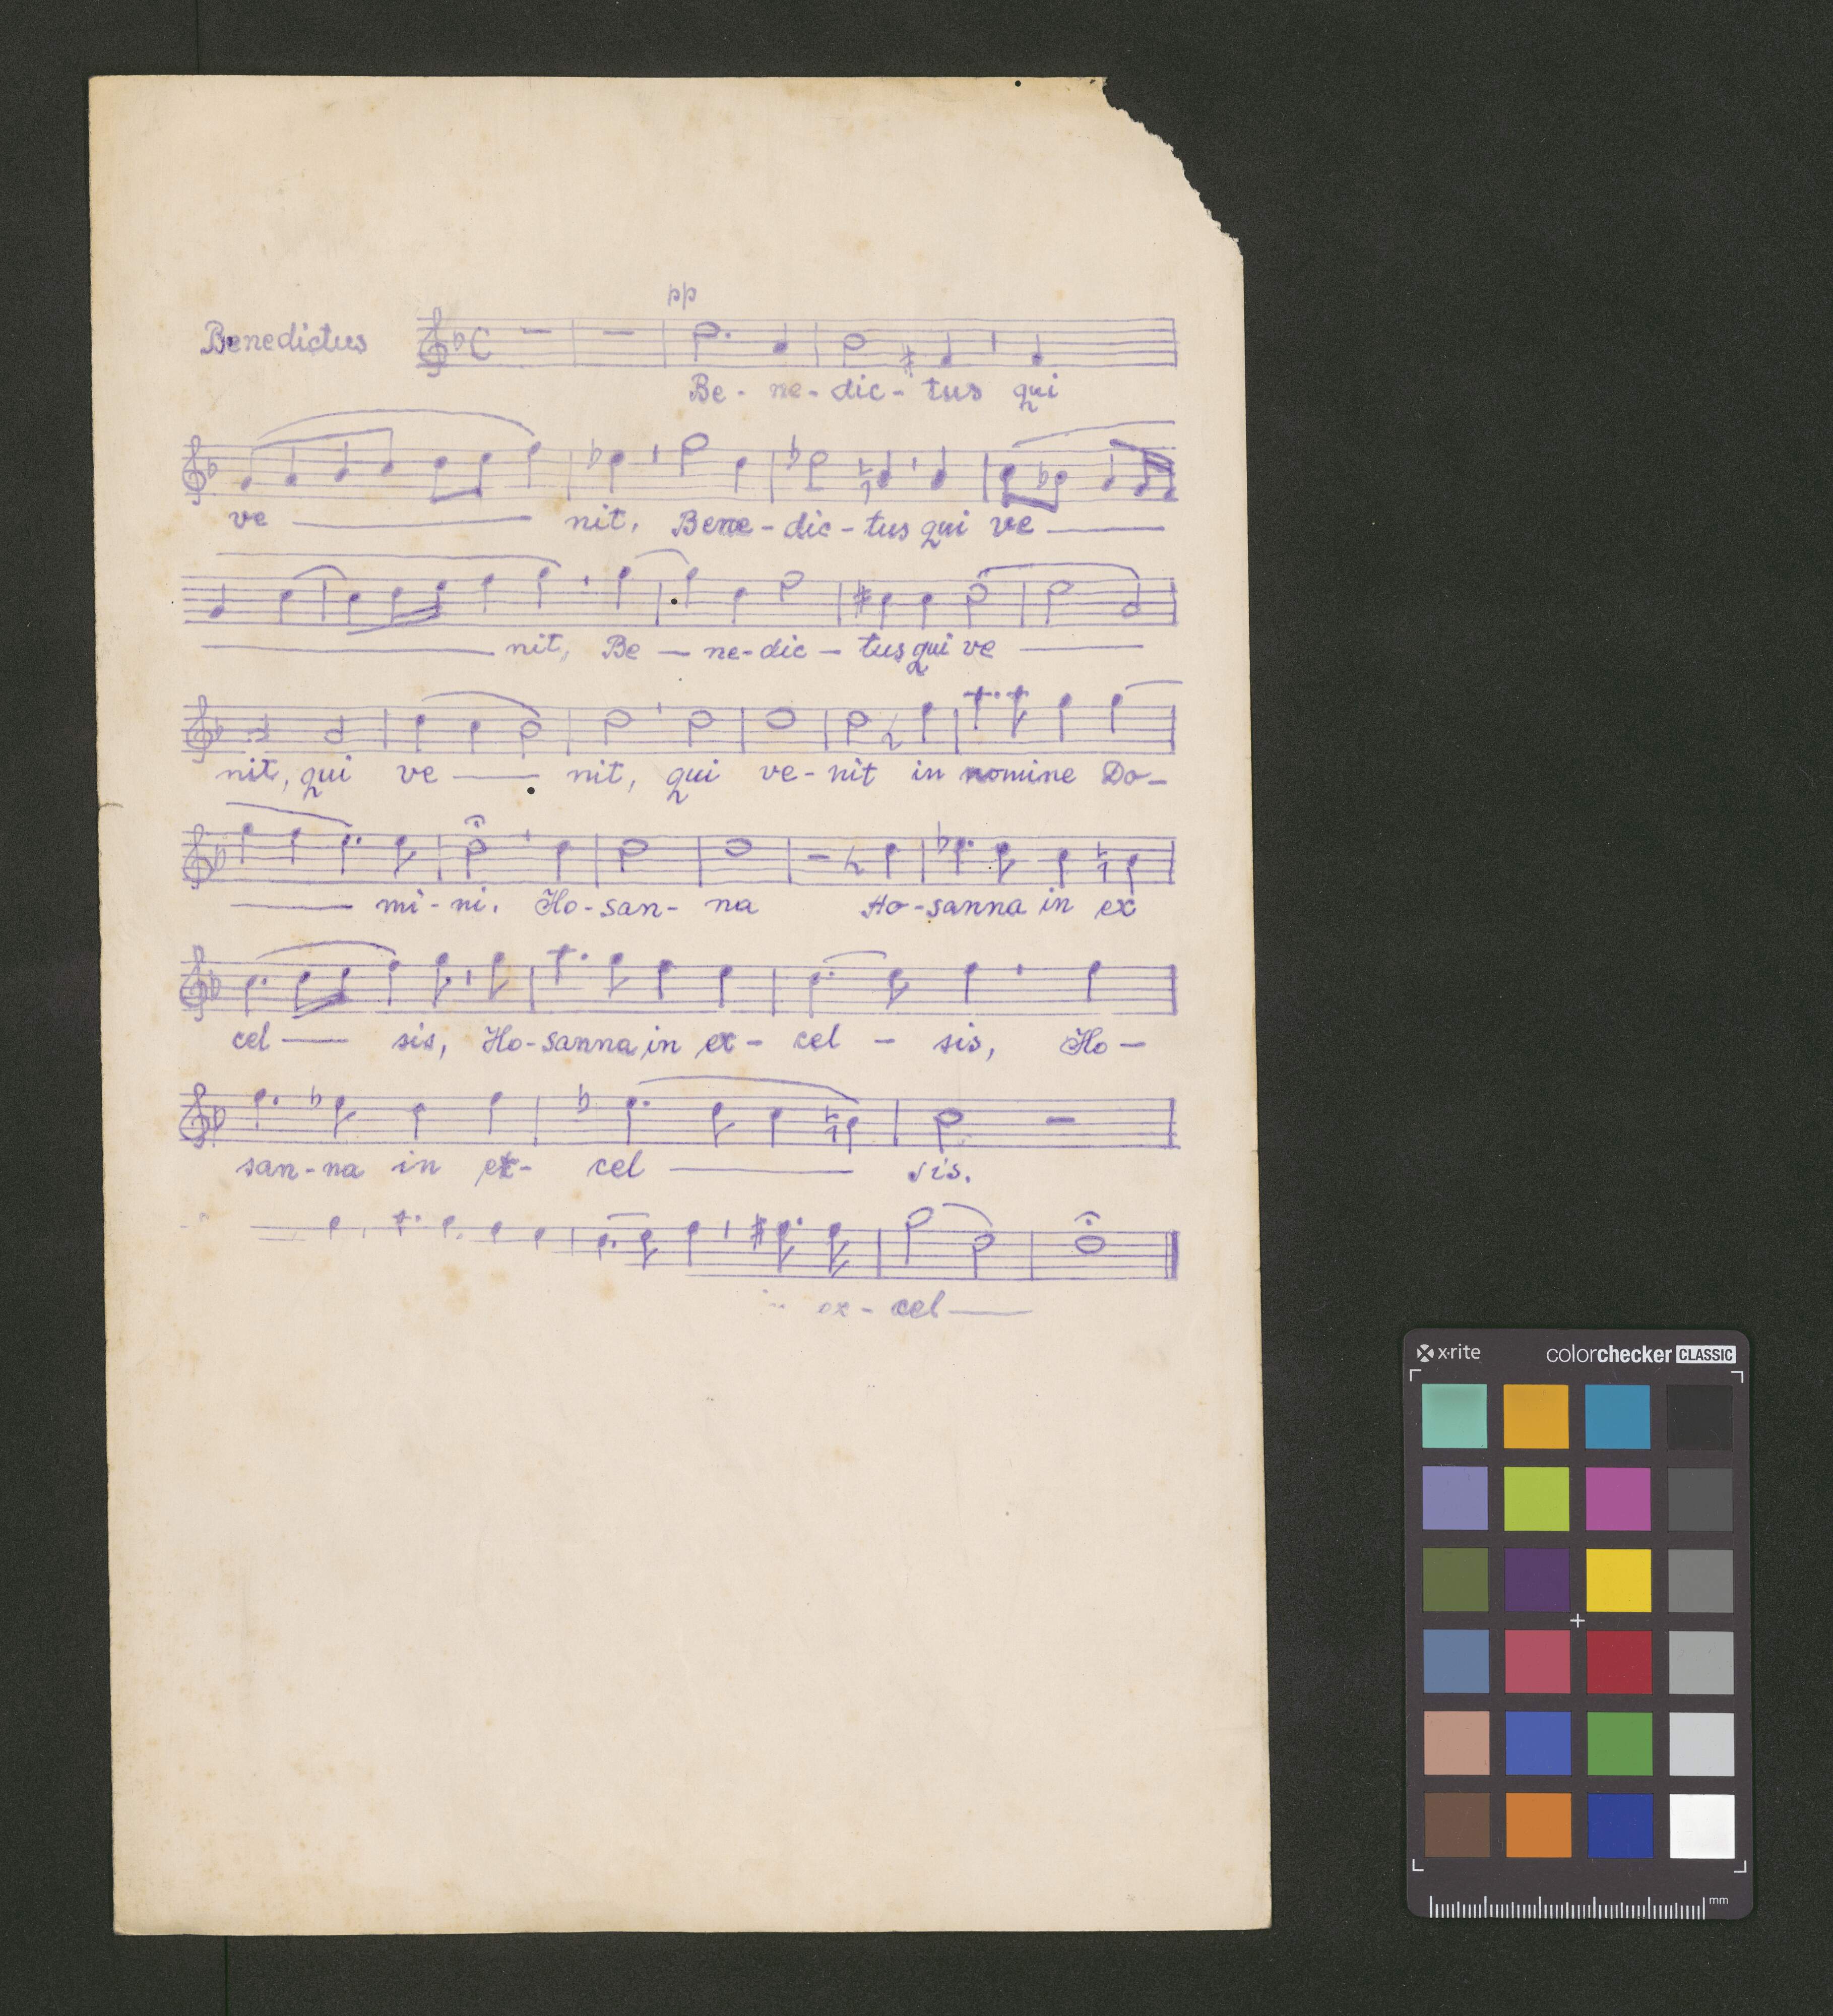 pp
Benedictus
Be - ne - dic - tus qui
ve ——— nit, Bene - dic - tus qui ve ———
——— nit, Be — ne - dic — tus qui ve ———
nit, qui ve —— nit, qui ve - nit in nomine Do -
——— mi - ni. Ho - san - na Ho - sanna in ex
cel —— sis, Ho - sanna in ex - cel - sis, Ho -
san - na in ex - cel ——— sis.
ex - cel ——
x·rite colorchecker CLASSIC
mm